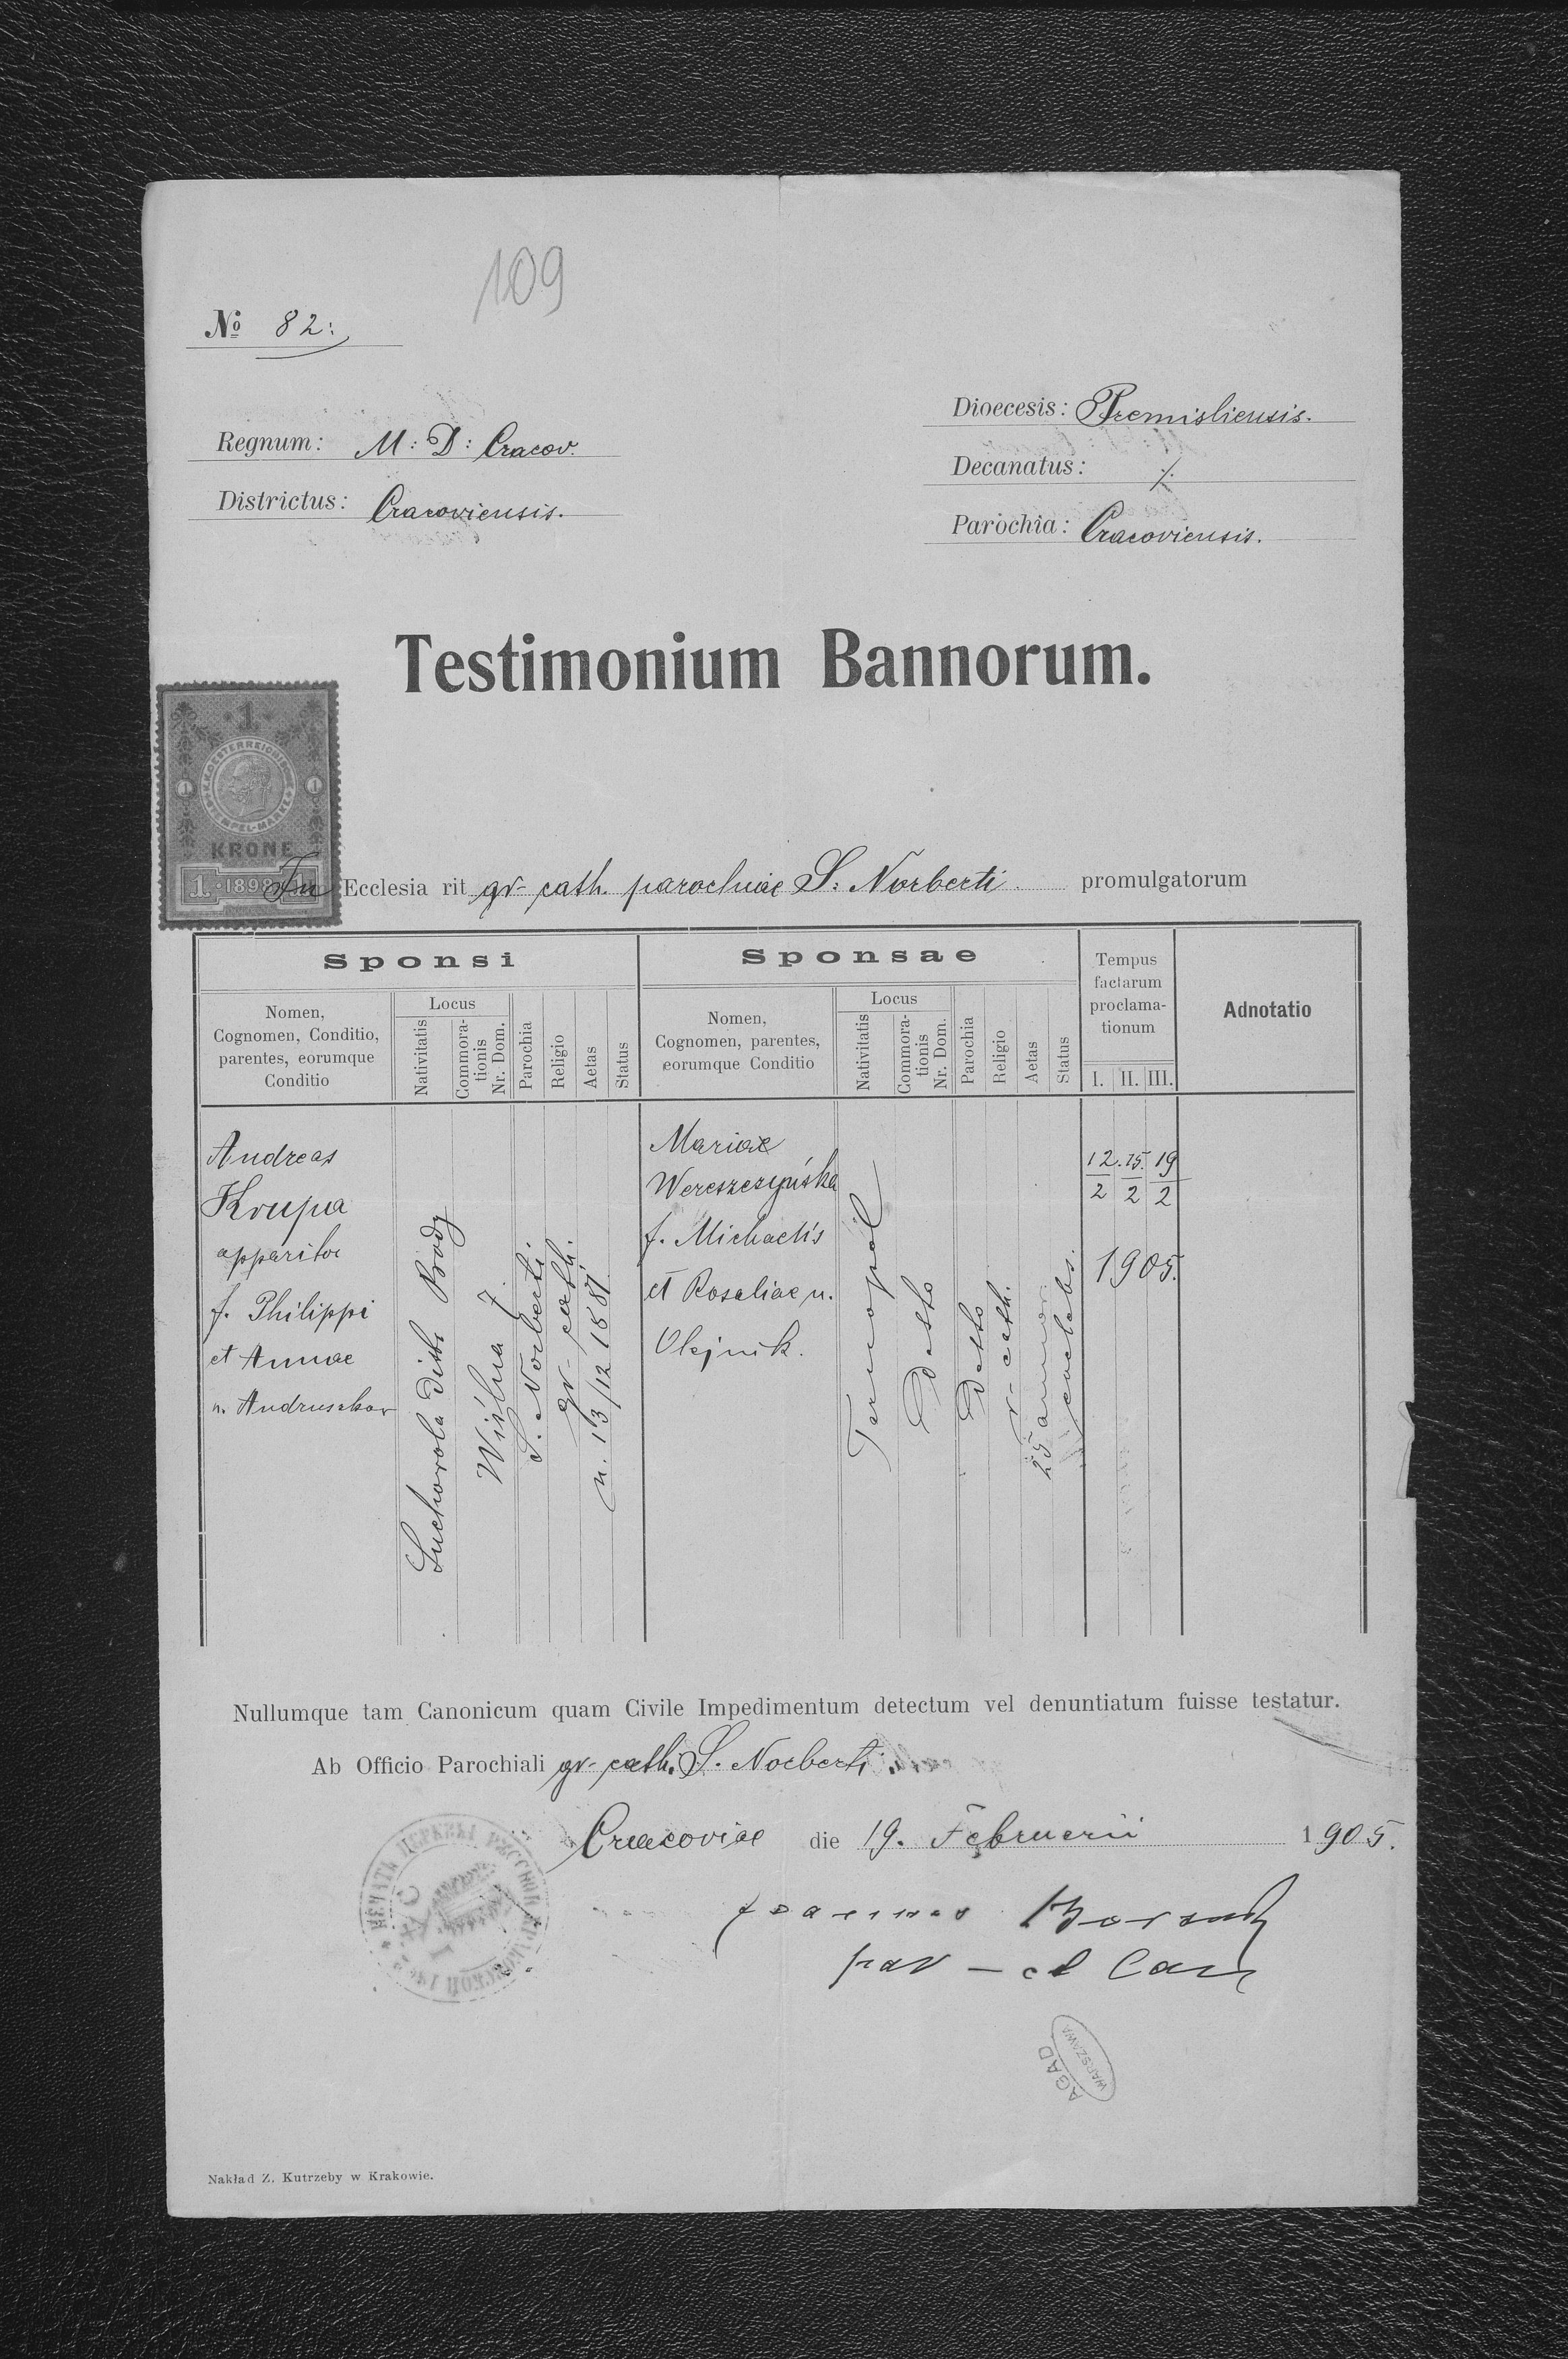 109
№ 82:
Regnum: M: D: Cracov.
Districtus: Cracoviensis.
Dioecesis: Premisliensis.
Decanatus: ⁒
Parochia: Cracoviensis.
Testimonium Bannorum.
1
K.K. OESTERREICHISCHE
STEMPEL-MARKE
1 1
KRONE
1. 1898 1.
In Ecclesia rit gr- cath. parochiae S. Norberti promulgatorum
Sponsi
Nomen,
Cognomen, Conditio,
parentes, eorumque
Conditio
Locus
Nativitatis
Commora-
tionis
Nr. Dom.
Parochia
Religio
Aetas
Status
Sponsae
Nomen,
Cognomen, parentes,
eorumque Conditio
Locus
Nativitatis
Commora-
tionis
Nr. Dom.
Parochia
Religio
Aetas
Status
Tempus
factarum
proclama-
tionum
I. II. III.
Adnotatio
Andreas
Krupa
apparitor
f. Philippi
et Annae
n. Andruschow
Suchowola distr Brody
Wiślna 7.
S. Norberti
gr- cath.
n. 13/12 1881
Mariae
Wereszczyńska
f. Michaelis
et Rosaliae n.
Olejnik.
Tarnopol
Detto
Detto
r- cath.
25 annor.
coelebs.
12. 15. 19
2 2 2
1905.
Nullumque tam Canonicum quam Civile Impedimentum detectum vel denuntiatum fuisse testatur.
Ab Officio Parochiali gr- cath. S. Norberti
Cracoviae die 19. Februarii 1905.
Joannes Borsuk
par –
AGAD
WARSZAWA
Nakład Z. Kutrzeby w Krakowie.